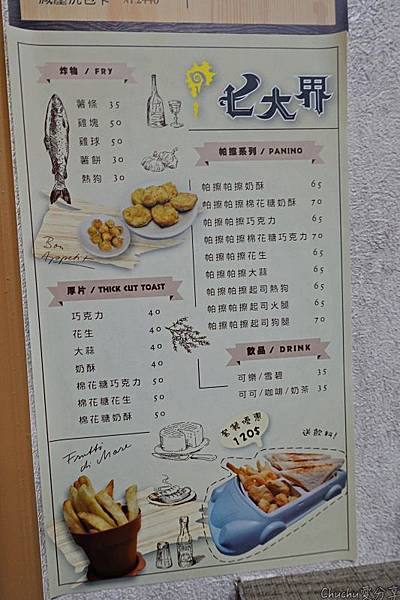 減壓洗包卡 NT.2440
七大界
炸物 / FRY
薯條 35
雞塊 50
雞球 50
薯餅 30
熱狗 30
Bon Appetit
厚片 / THICK CUT TOAST
巧克力 40
花生 40
大蒜 40
奶酥 40
棉花糖巧克力 50
棉花糖花生 50
棉花糖奶酥 50
帕擦系列 / PANINO
帕擦帕擦奶酥 65
帕擦帕擦棉花糖奶酥 70
帕擦帕擦巧克力 65
帕擦帕擦棉花糖巧克力 70
帕擦帕擦花生 65
帕擦帕擦大蒜 65
帕擦帕擦起司熱狗 65
帕擦帕擦起司火腿 65
帕擦帕擦起司狗腿 70
飲品 / DRINK
可樂/雪碧 35
可可/咖啡/奶茶 35
套餐優惠
120$
送飲料!
Frutti di Mare
Chuchu愛分享